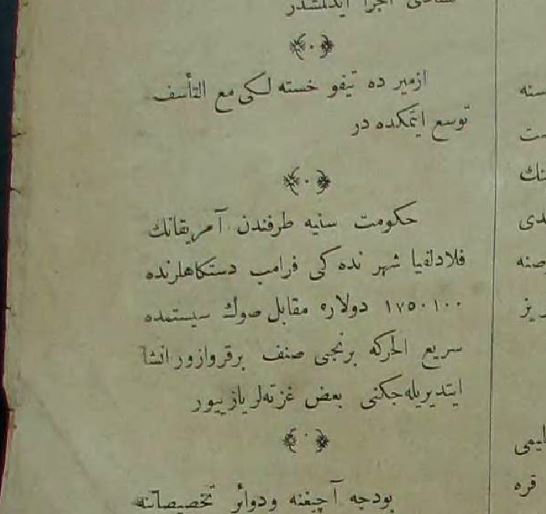 اجرا ایدلمشدر
ازمیر ده تیفو خسته لكی مع التأسف
توسع ایتمكده در
حكومت سنیه طرفندن آمریقانك
فلادلفیا شهر نده كی فرامب دستكاهلرنده
١٧٥٠١٠٠ دولاره مقابل صوك سیستمده
سریع الحركه برنجی صنف برقروازور انشا
ایتدیریله‌جكنی بعض غزته‌لر یازییور
بودجه آچیغنه ودوائر تخصیصاتنه
سنه
ست
نك
دی
صنه
ریز
ایمی
قره